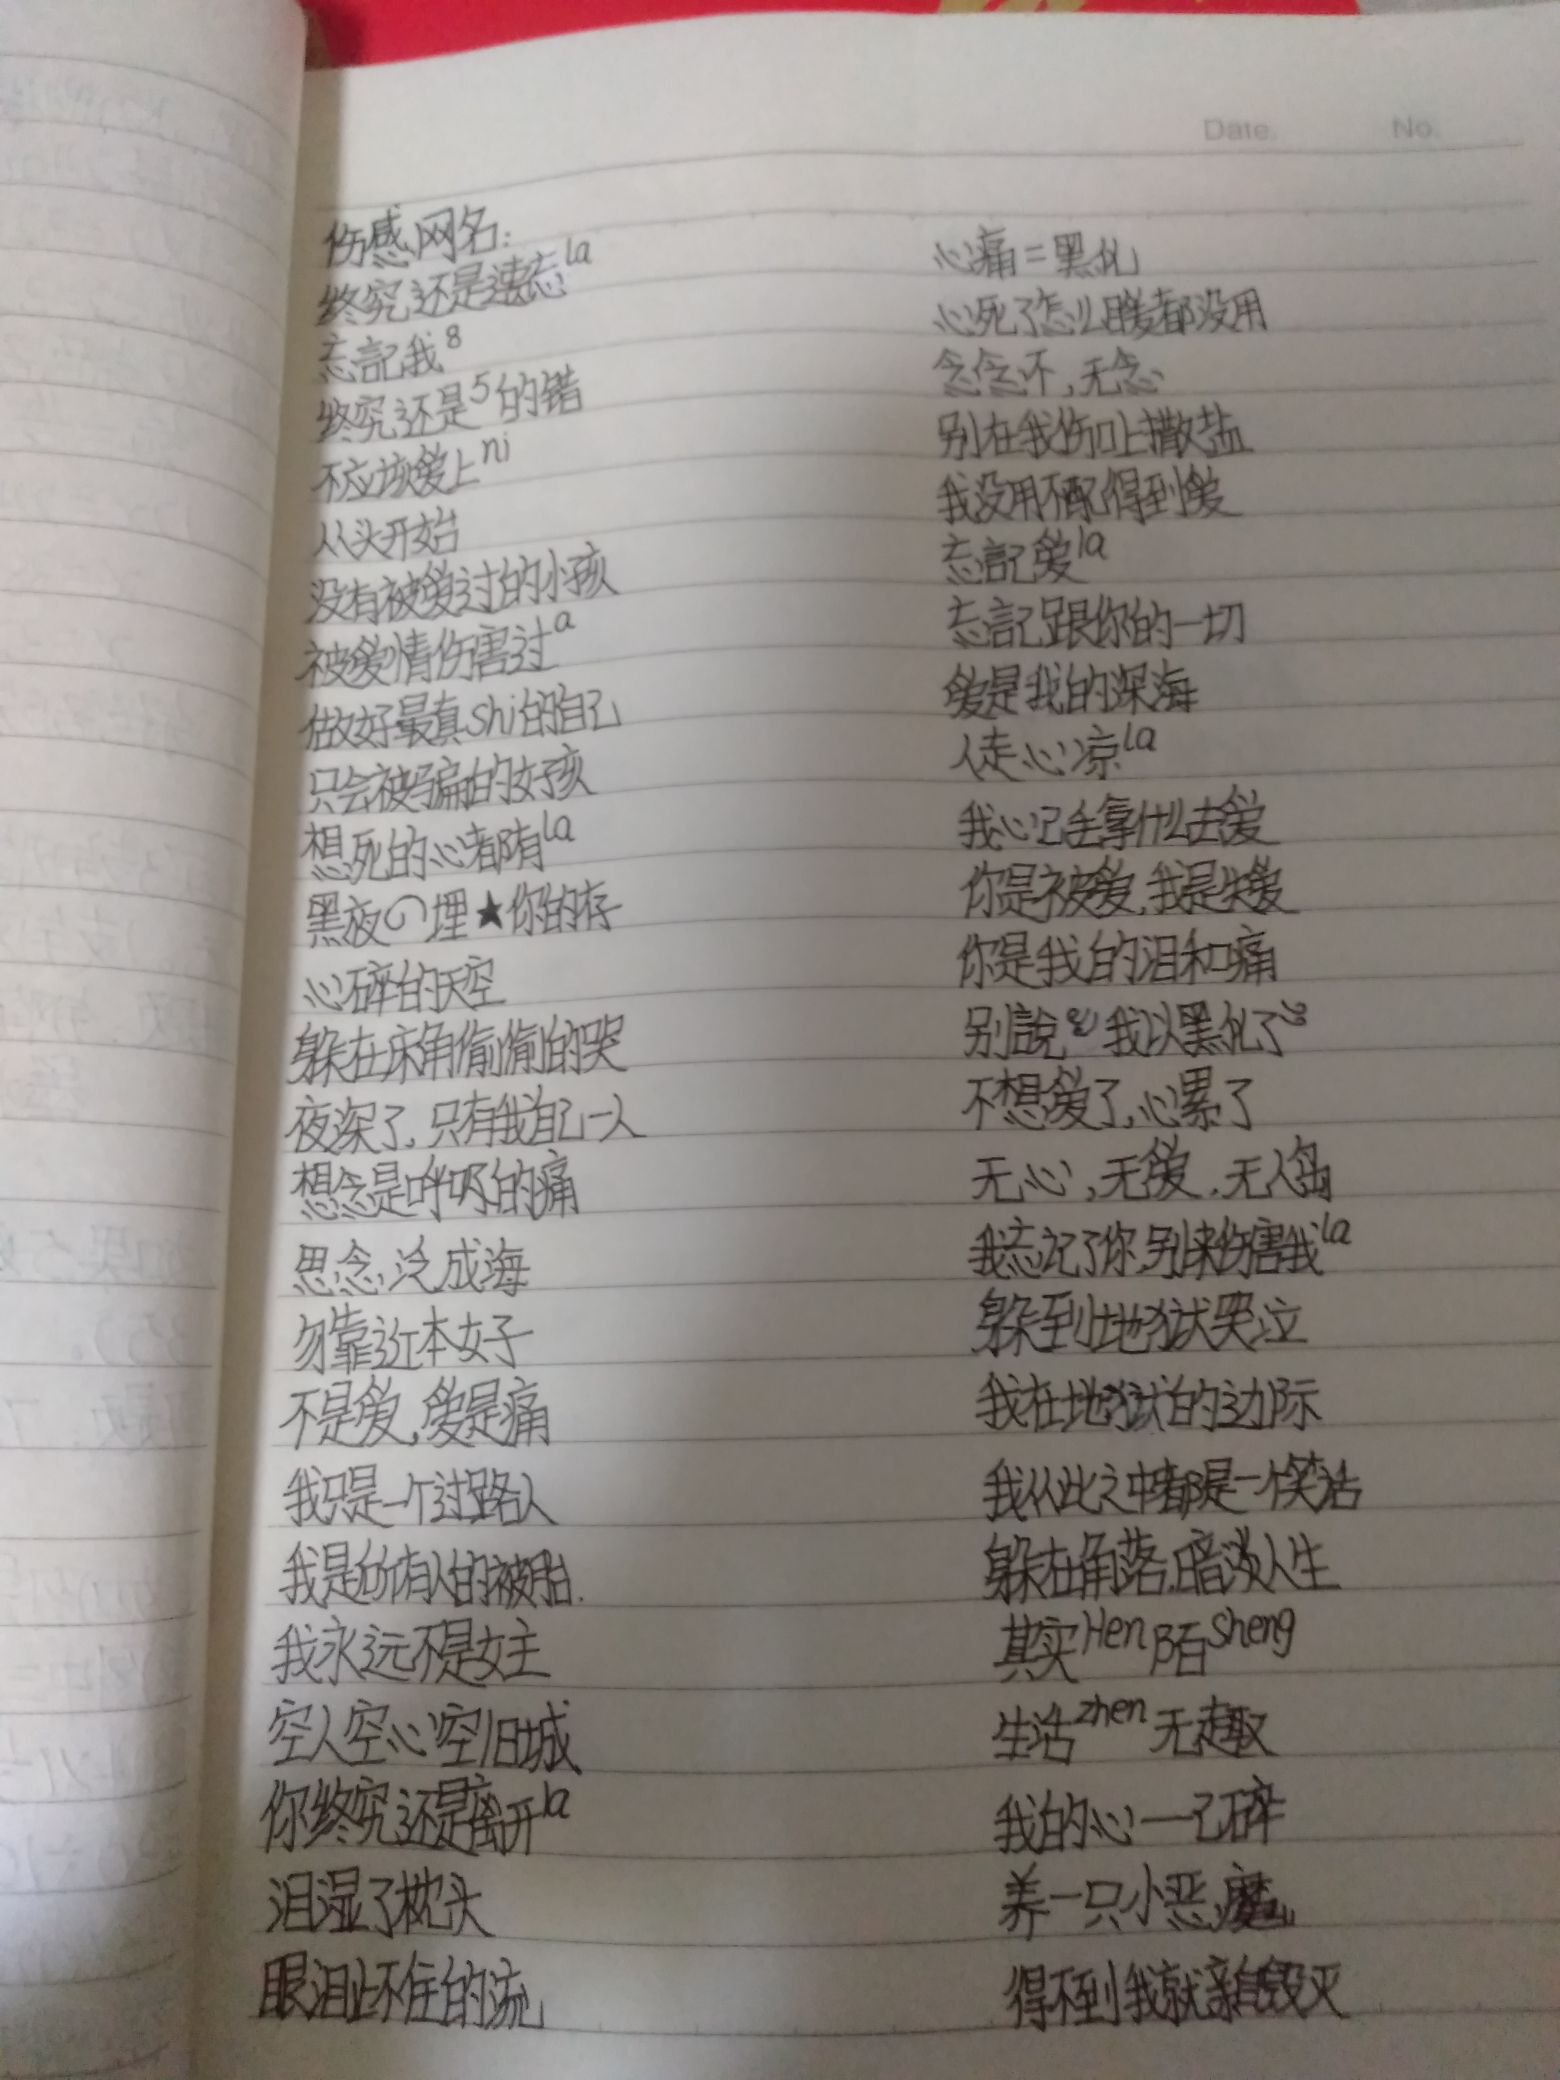 Date. No.
伤感网名:
终究还是遗忘la
忘記我8
终究还是5的错
不应该爱上ni
从头开始
没有被爱过的小孩
被爱情伤害过a
做好最真shi的自己
只会被骗的女孩
想死的心都有la
黑夜の埋★你的存
心碎的天空
躲在床角偷偷的哭
夜深了,只有我自己一人
想念是呼吸的痛
思念,泛成海
勿靠近本女子
不是爱,爱是痛
我只是一个过路人
我是所有人的被胎.
我永远不是女主
空人空心空旧城
你终究还是离开la
泪湿了枕头
眼泪止不住的流
心痛=黑化
心死了怎么暖都没用
念念不,无念
别在我伤口上撒盐
我没用不配得到爱
忘記爱la
忘記跟你的一切
爱是我的深海
人走心凉la
我心已走拿什么去爱
你是被爱,我是失爱
你是我的泪和痛
别說 我以黑化了
不想爱了,心累了
无心,无爱,无人岛
我忘记了你,别来伤害我la
躲到地狱哭泣
我在地狱的边际
我从此之中都是一个笑话
躲在角落,暗淡人生
其实Hen陌sheng
生活zhen无趣
我的心一已碎
养一只小恶魔
得不到我就亲自毁灭